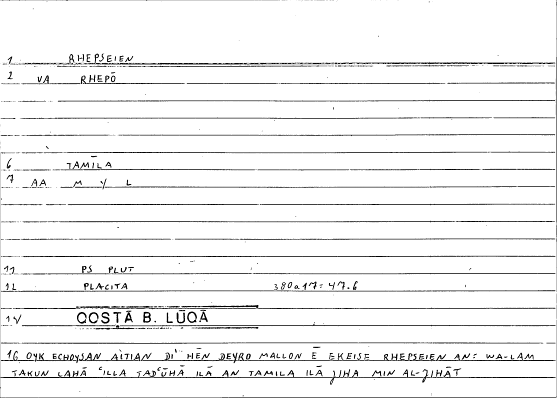 1 RHEPSEIEN
2 VA RHEPŌ
6 TAMĪLA
7 AA M Y L
11 PS PLUT
12 PLACITA 380a17 = 47.6
14 QOSṬĀ B. LŪQĀ
16 OYK ECHOYSAN AITIAN DI' HĒN DEYRO MALLON Ē EKEISE RHEPSEIEN AN: WA-LAM
TAKUN LAHĀ ʿILLA TADʿŪHĀ ILĀ AN TAMILA ILĀ JIHA MIN AL-JIHĀT